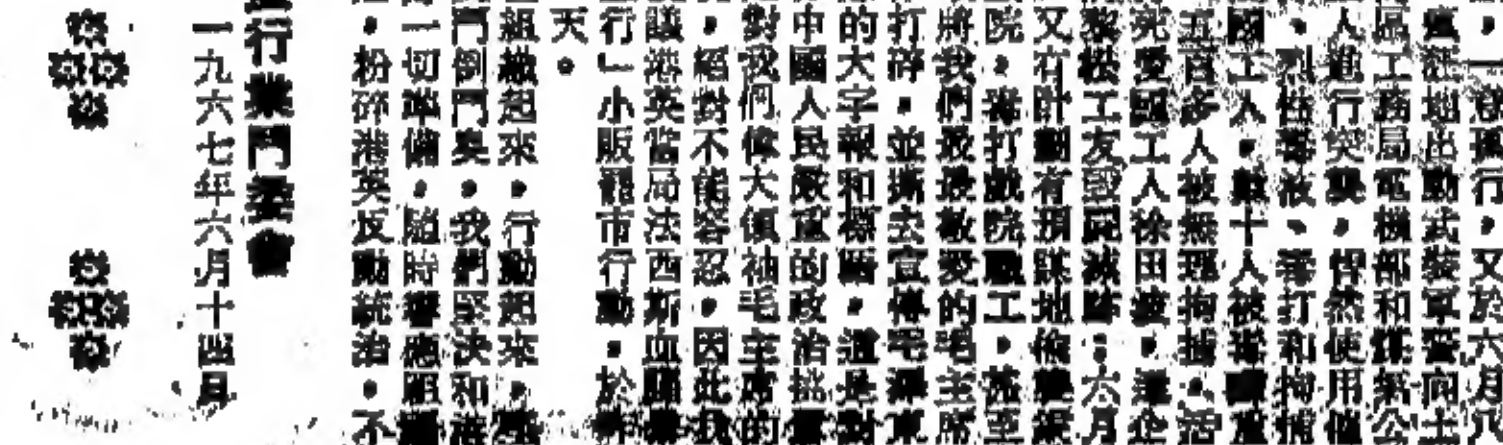 ，一意孤行，又於六月八
瘋狂地出動武裝軍警向土
區工務局電機部和煤氣公
人進行突襲，悍然使用催
、毒打和拘捕
國工人，數十人被
五百多人被無理拘捕，活
死愛國工人徐田波，並企
黎松工友毀屍滅跡；六月
又有計劃有預謀地偷襲銀
院，毒打戲院職工，甚至
將我們最最敬愛的毛主席
打碎，並撕去宣傳毛澤東
的大字報和標語，這是對
中國人民嚴重的政治挑釁
對我們偉大領袖毛主席的
，絕對不能容忍，因此我
議港英當局法西斯血腥
行」小販罷市行動，於昨
天。
組織起來，行動起來，
鬥倒鬥臭，我們堅決和
一切準備，隨時響應祖
，粉碎港英反動統治，不
行業鬥委會
一九六七年六月十四月